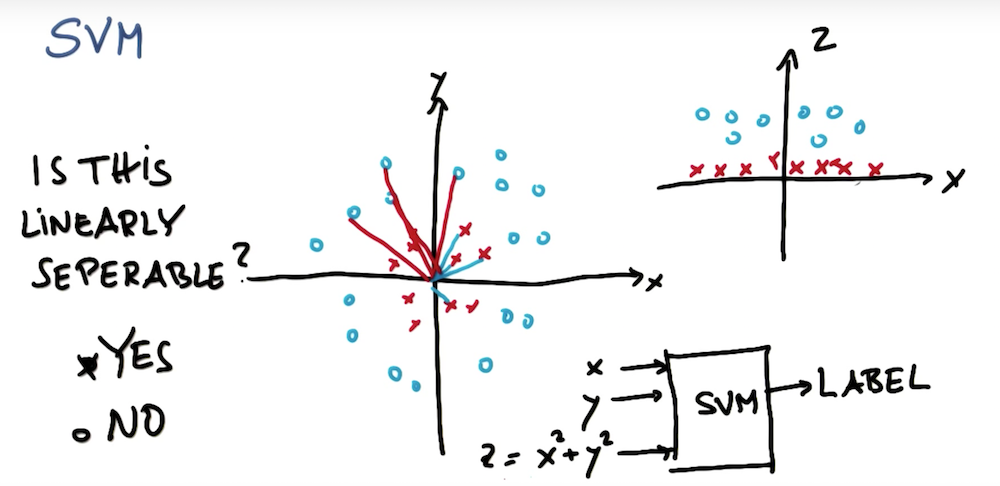 SVM
IS THIS
LINEARLY
SEPERABLE?
YES
NO
y
x
z
x
x
y
z = x²+y²
SVM
LABEL